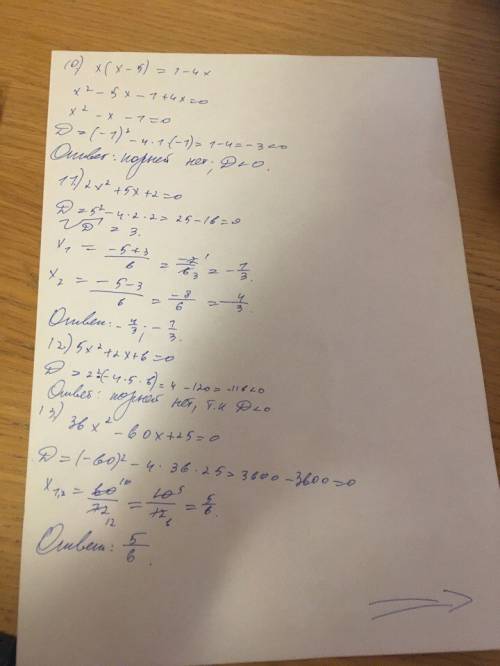 10) x(x-5) = 1-4x
x² - 5x - 1 + 4x = 0
x² - x - 1 = 0
D = (-1)² - 4·1·(-1) = 1-4 = -3 < 0
Ответ: корней нет, D < 0.
11) 2x² + 5x + 2 = 0
D = 5² - 4·2·2 = 25 - 16 = 9
√D = 3.
x₁ = -5+3/6 = -2/6 = -1/3.
x₂ = -5-3/6 = -8/6 = -4/3.
Ответ: -4/3; -1/3.
12) 5x² + 2x + 6 = 0
D = 2² - 4·5·6 = 4 - 120 = -116 < 0
Ответ: корней нет, т.к D < 0
13) 36x² - 60x + 25 = 0
D = (-60)² - 4·36·25 = 3600 - 3600 = 0
x₁,₂ = 60/72 = 10/12 = 5/6.
Ответ: 5/6.